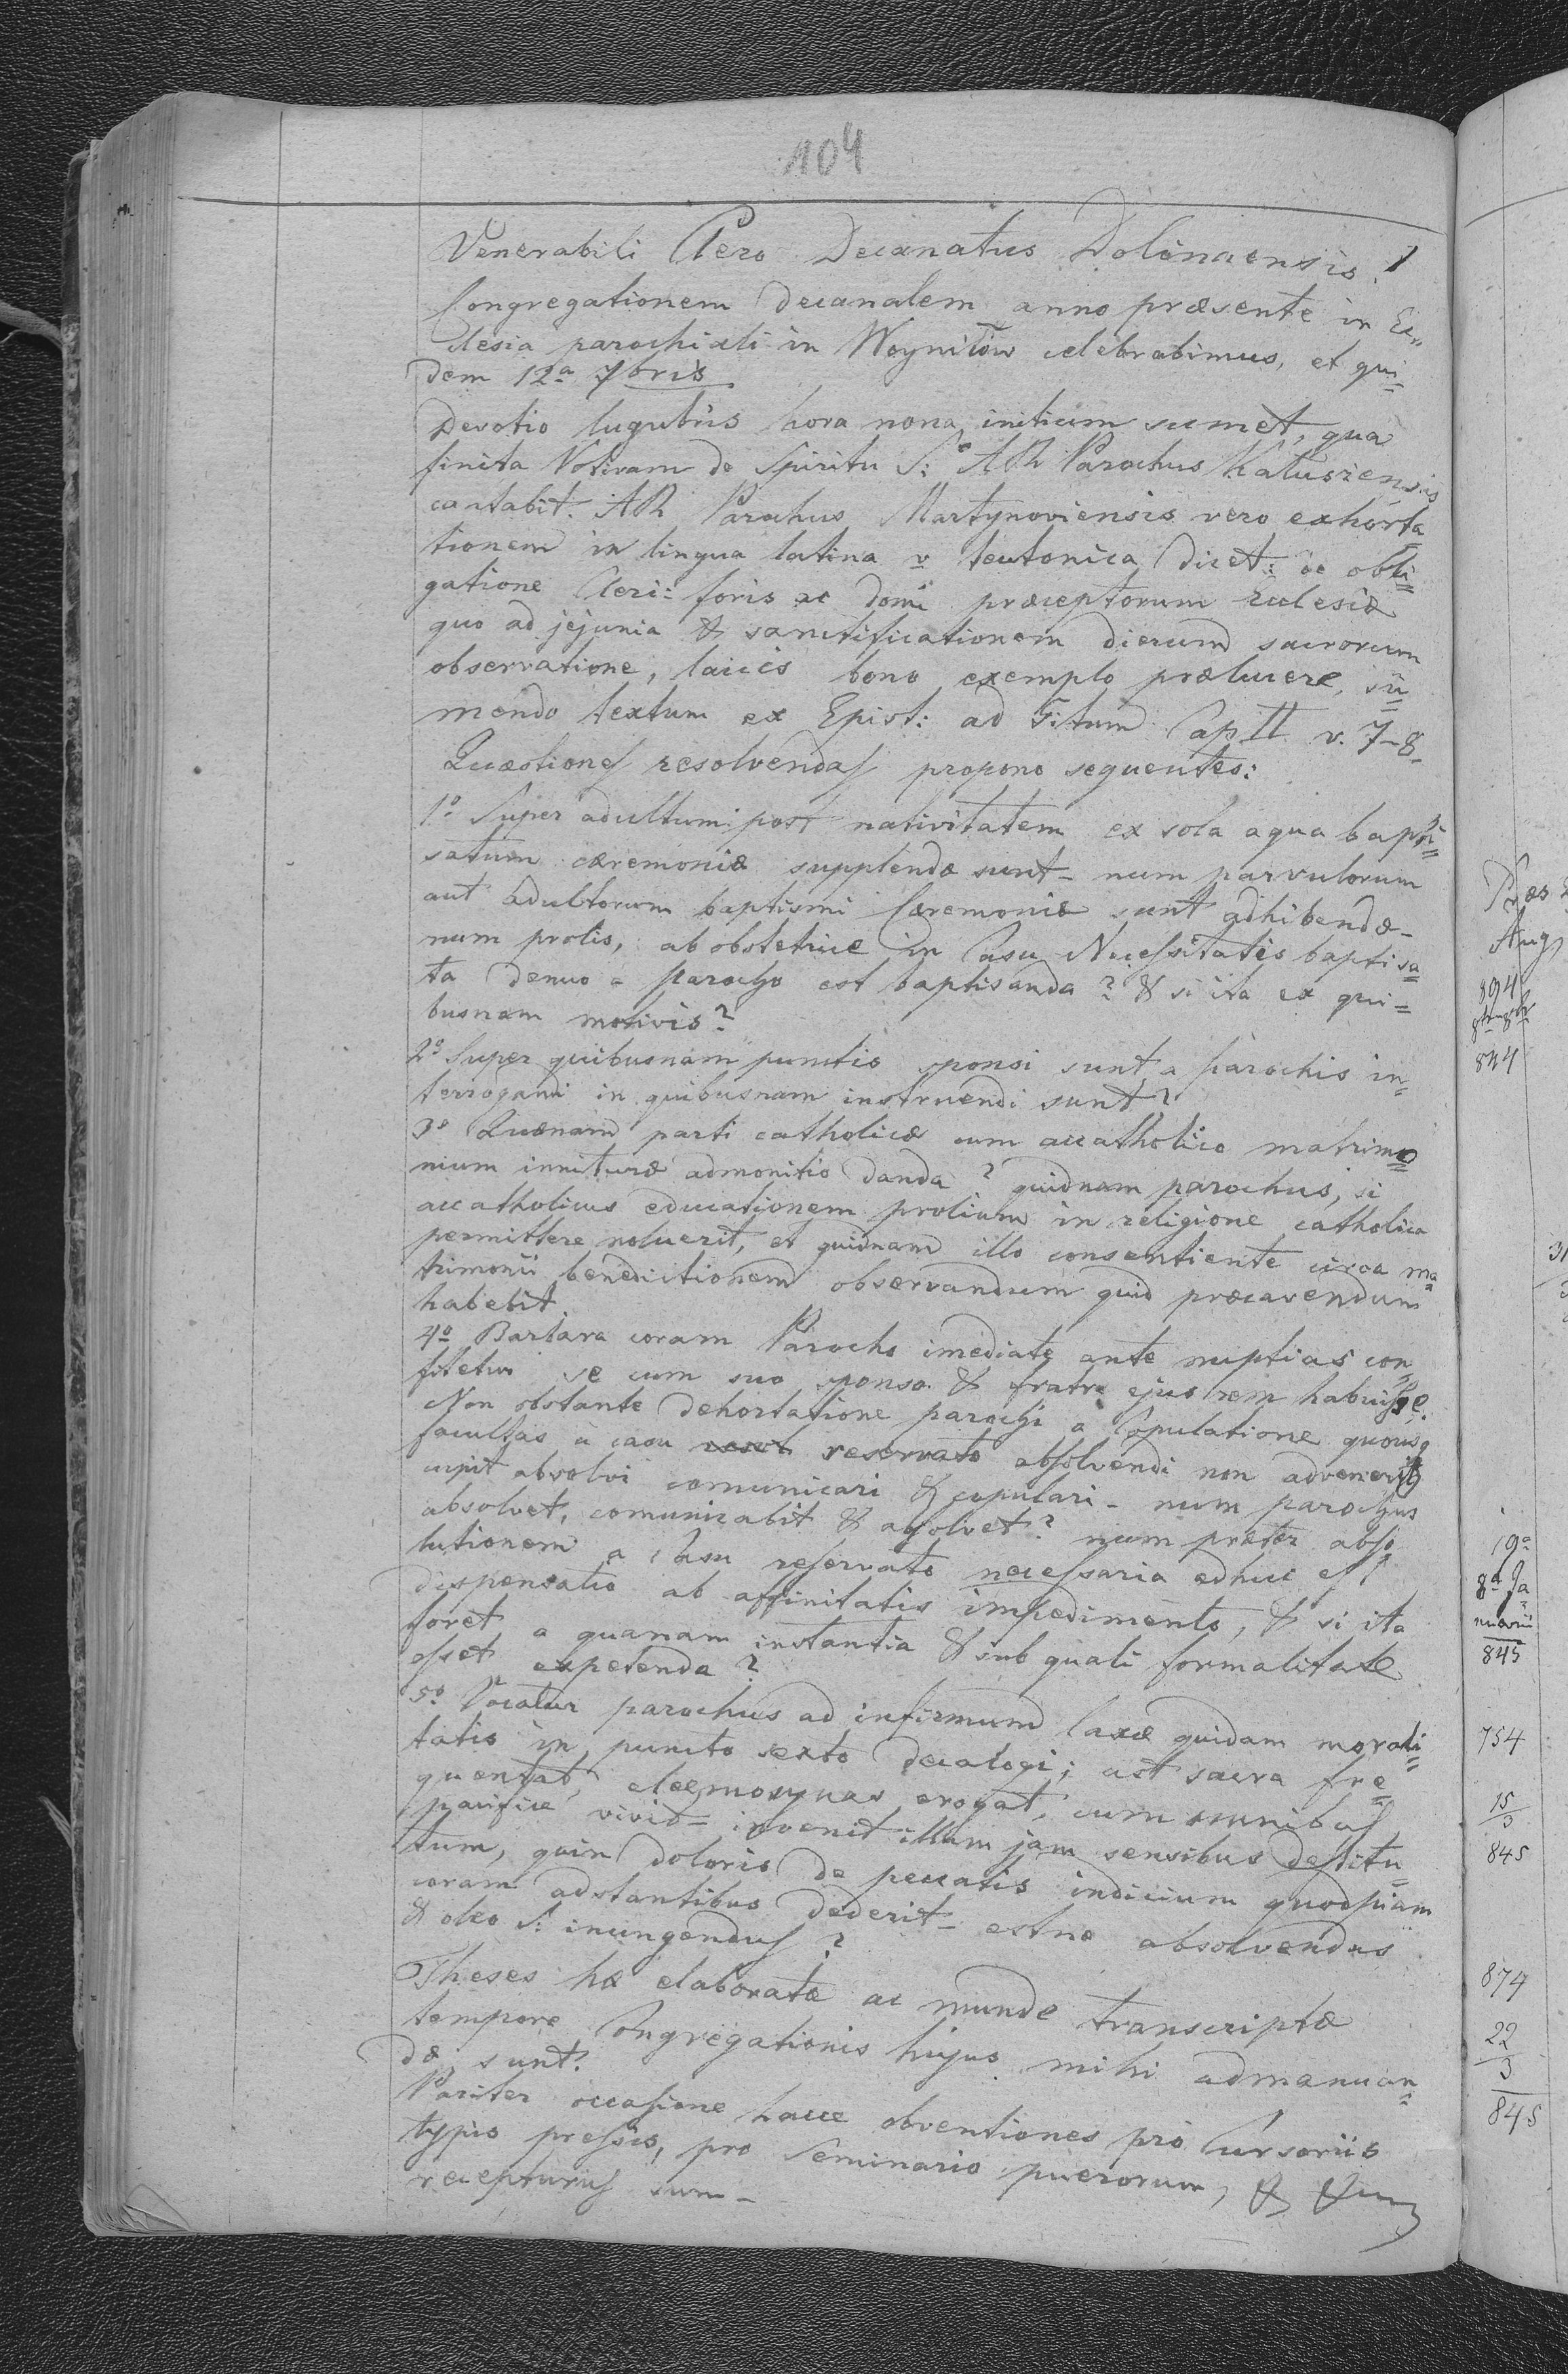 104
Venerabili Clero Decanatus Dolinaensis!
Congregationem Decanalem anno præsente in Ec„
clesia parochiali in Woyniłów celebrabimus, et qui=
dem 12ª 7bris
Devotio lugubris hora nona initium sumet, qua
finita Votivam de Spiritu S: AR Parochus Kałusiensis
cantabit. AR Parochus Martynoviensis vero exhorta=
tionem in lingua latina v teutonica dicet: de obli=
gatione Cleri: foris ac domi præceptorum Eclesiæ
quo ad jejunia & sanctificationem dierum sacrorum
observatione, laicis bono exemplo prælucere, su=
mendo textum ex Epist: ad Titum Cap II v. 7-8.
Quæstiones resolvendas propono sequentes:
1º Super adultum post nativitatem ex sola aqua bapti=
satum cæremoniæ supplendæ sunt – num parvulorum
aut adultorum baptismi Cæremoniæ sunt adhibendæ –
num prolis, ab obstetrice in Casu Necessitatis baptisa=
ta denuo a parocho est baptisanda? & si ita ex qui=
busnam motivis?
2º Super quibusnam punctis sponsi sunt a parochis in=
terrogandi in quibusnam instruendi sunt?
3º Quænam parti catholicæ cum accatholico matrimo=
nium initturæ admonitio danda? quidnam parochus, si
accatholicus educationem prolium in religione catholica
permittere noluerit, et quidnam illo consentiente circa ma=
trimonii benedictionem observandum quid præcavendum
habebit.
4º Barbara coram Parocho imediate ante nuptias con=
fitetur se cum suo sponso & fratre ejus rem habuisse.
Non obstante dehortatione parochi a Copulatione quousq
facultas a casu reservato absolvendi non advenerit
cupit absolvi comunicari & copulari – num parochus
absolvet, comunicabit & absolvet? num præter abso
lutionem a Casu reservato necessaria adhuc est
dispensatio ab affinitatis impedimento, & si ita
foret a quanam instantia & sub quali formalitate
esset expetenda?
5º Vocatur parochus ad infirmum laxæ quidam morali=
tatis in puncto sexto decalogi; ast sacra fre=
quentat, eleemosynas erogat, cum omnibus
pacifice vivit – invenit illum jam sensibus destitu=
tum, quin doloris de peccatis indicium quodpiam
coram adstantibus dederit – estne absolvendus
& oleo S: inungendus?
Theses hæ elaboratæ ac munde transcriptæ
tempore Congregationis hujus mihi admanuan=
dæ sunt.
Pariter occasione hacce obventiones pro Cursoriis
typis pressis, pro Seminario puerorum, &
recepturus sum –
Præs
Aug
894
844
19ª
8ª Ja=
nuarii
845
754
15
3
845
874
22
3
845